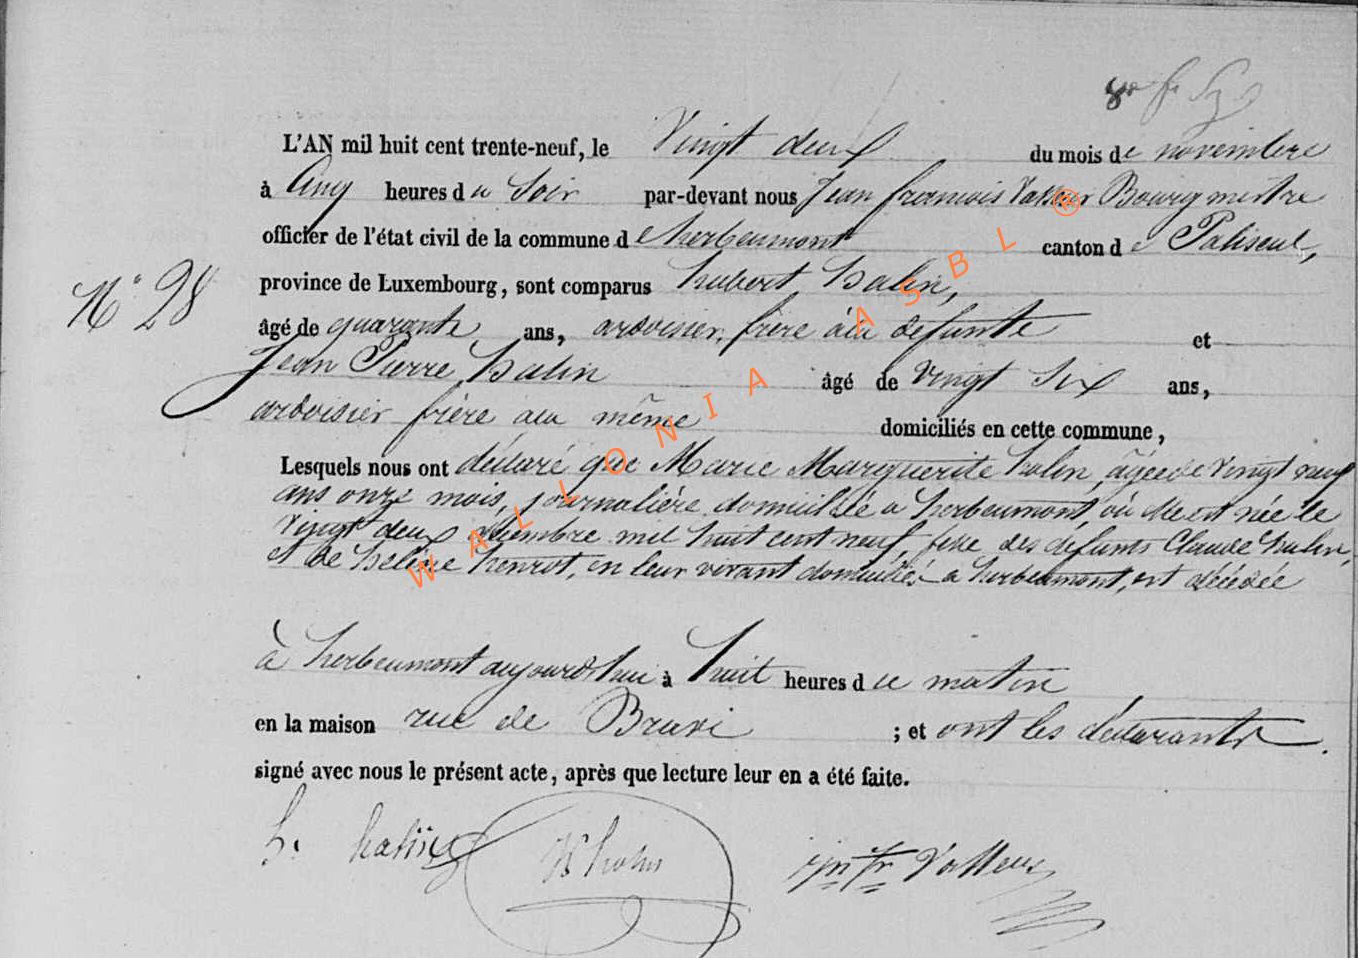 L'AN mil huit cent trente-neuf, le Vingt deux du mois de novembre
à Cinq heures du Soir par-devant nous Jean francois Vasseur Bourgmestre
officier de l'état civil de la commune d'herbeumont canton de Paliseul,
N° 28
province de Luxembourg, sont comparus hubert halin,
âgé de quarante ans, ardoisier, frère à la défunte et
Jean Pierre halin âgé de vingt Six ans,
ardoisier frère à la même domiciliés en cette commune,
Lesquels nous ont déclaré que Marie Marguerite halin, âgée de vingt neuf
ans onze mois, journalière domiciliée a herbeumont, où elle est née le
vingt deux mil huit cent neuf, fille des défunts Claude halin,
et de héline henrot, en leur vivant domiciliés a herbeumont, est décédée
à herbeumont aujourd'hui à huit heures du matin
en la maison rue de ; et ont les déclarants
signé avec nous le présent acte, après que lecture leur en a été faite.
h. halin jn fr Vasseur
WALLONIA ASBL ®